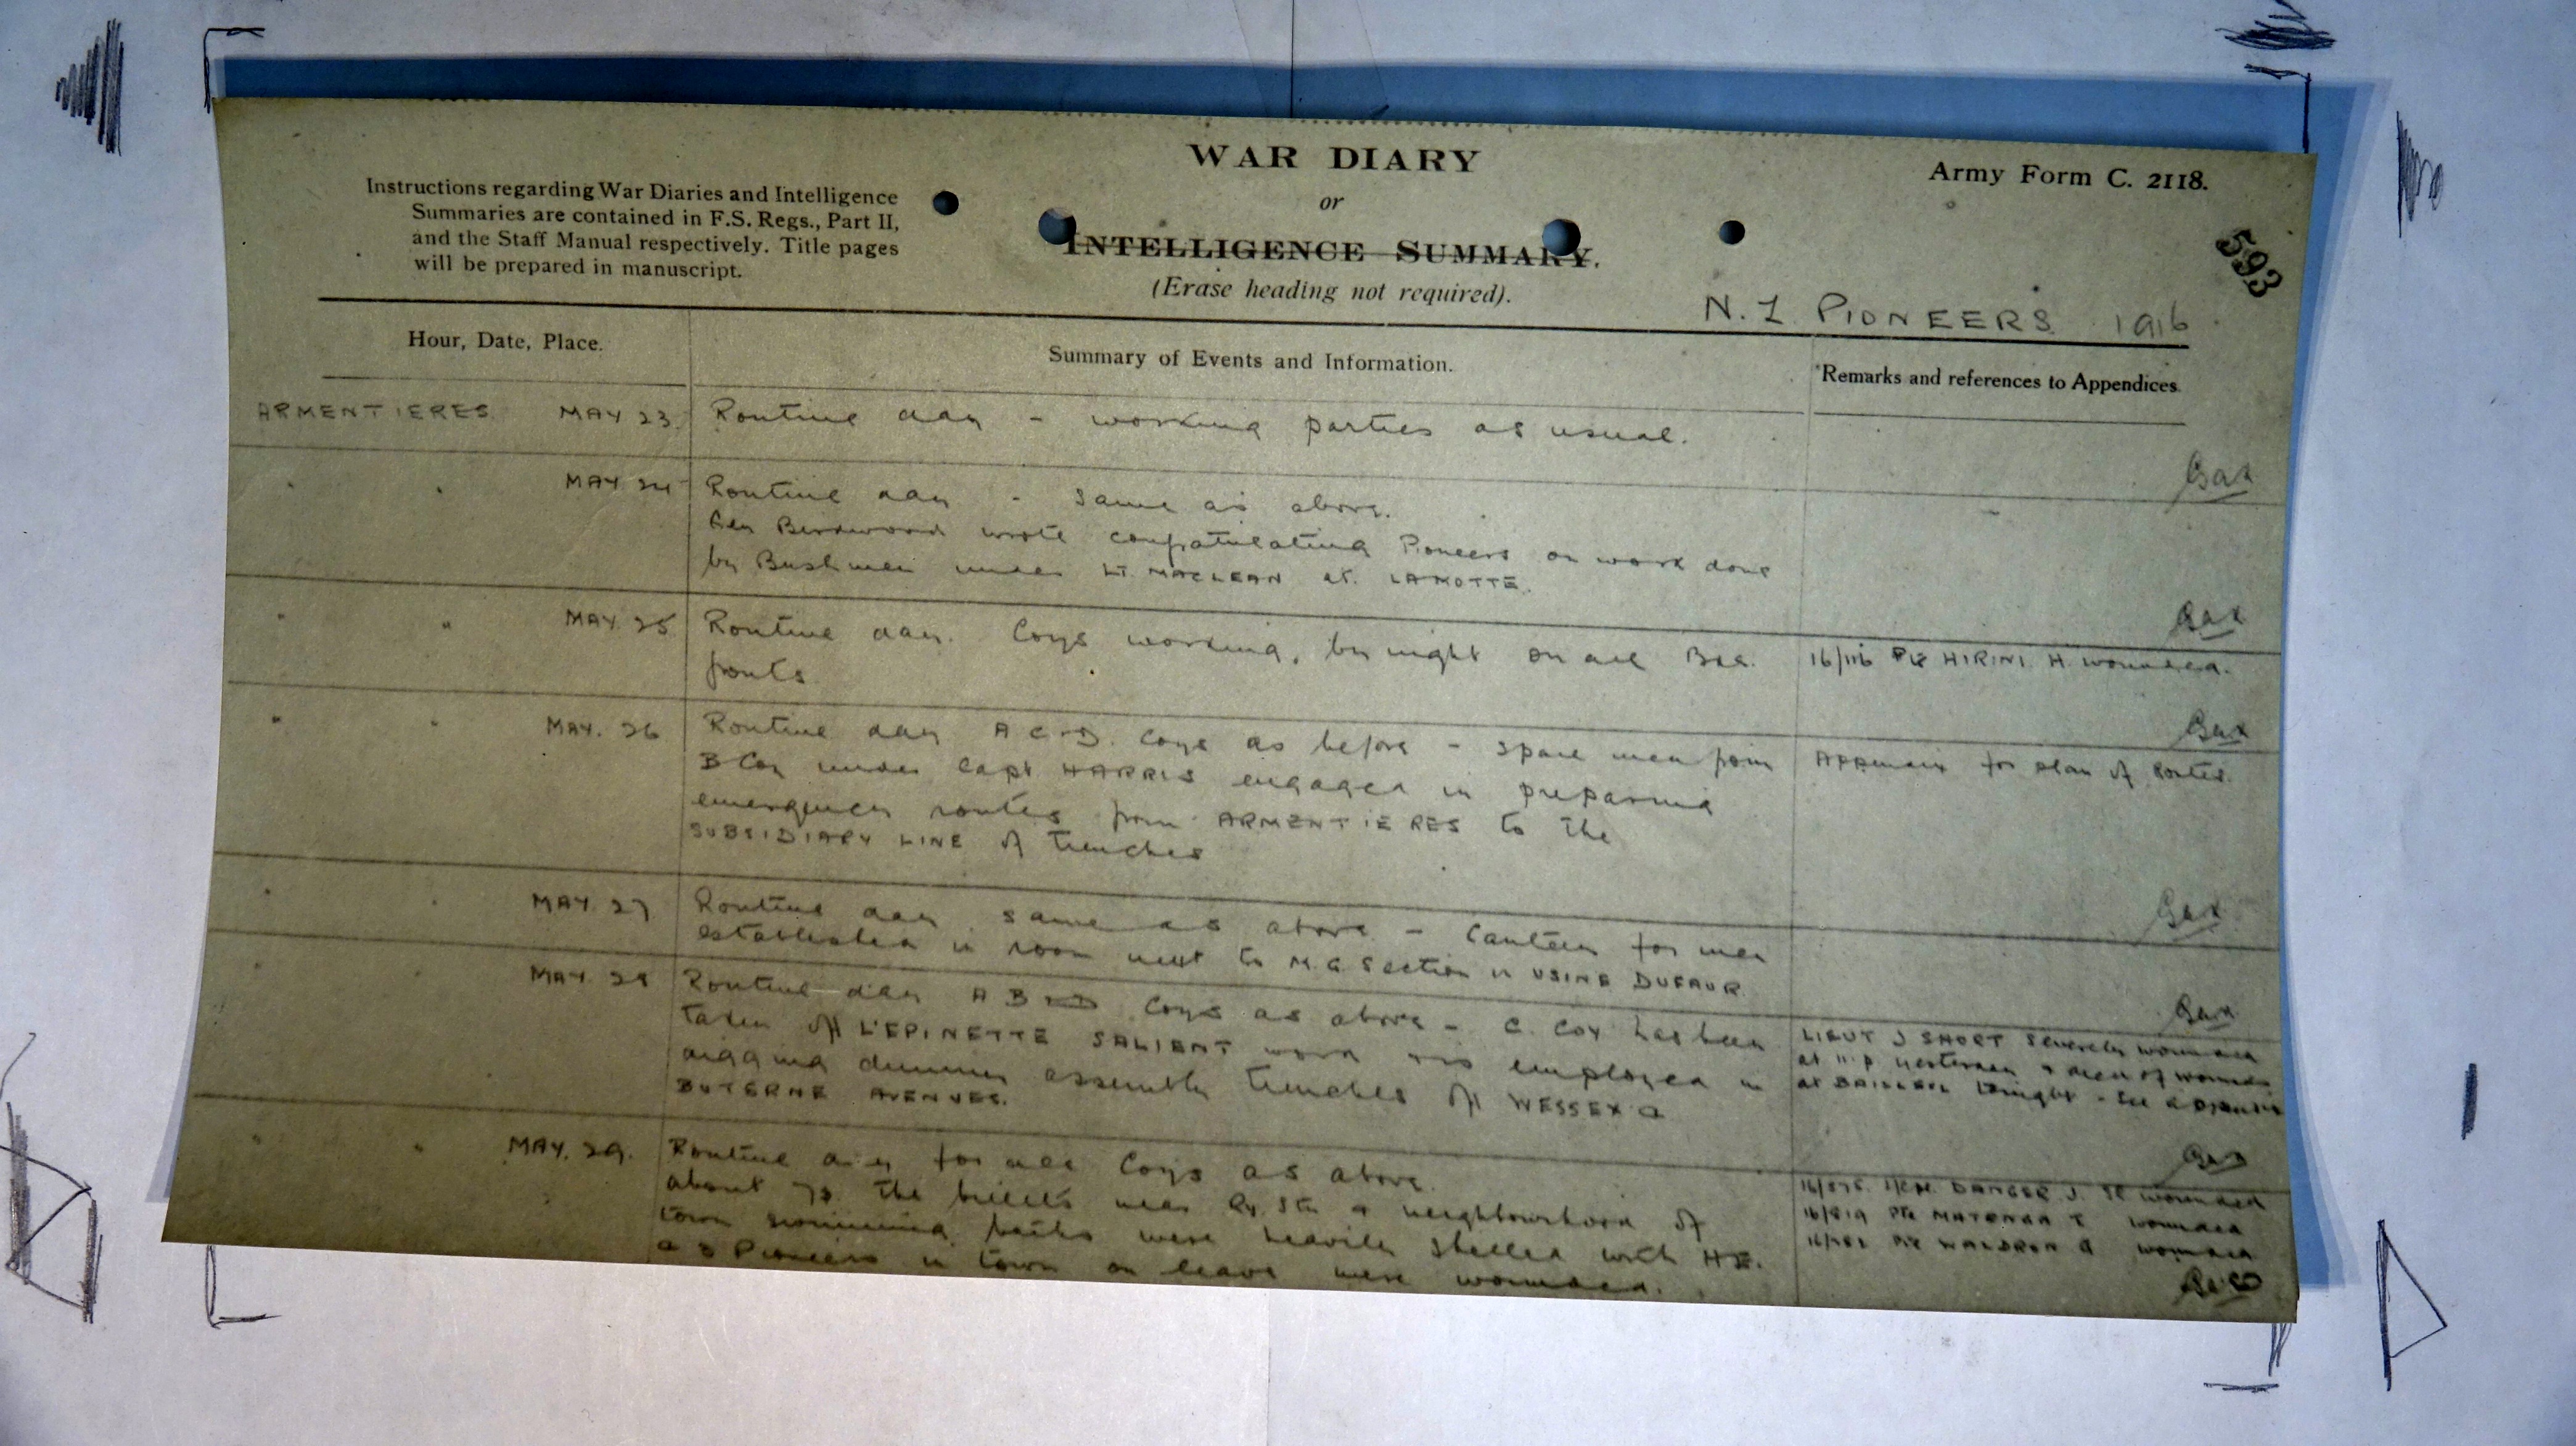 WAR DIARY
or
INTELLIGENCE SUMMARY.
(Erase heading not required).
Instructions regarding War Diaries and Intelligence
Summaries are contained in F.S. Regs., Part II,
and the Staff Manual respectively. Title pages
will be prepared in manuscript.
Army Form C. 2118.
593
N.Z. PIONEERS 1916
Hour, Date, Place.
Summary of Events and Information.
Remarks and references to Appendices.
ARMENTIERES MAY 23. Routine day - working parties as usual.
" " MAY 24 Routine day - same as above.
Gen Birdwood wrote congratulating Pioneers on work done
by Bushmen under LT. MACLEAN at LAMOTTE.
" " MAY 25 Routine day. Coys working, by night on all Bde.
fronts
16/116 Pte HIRINI. H. wounded.
" " MAY. 26 Routine day A C + D. Coys as before - spare men from
B Coy under Capt HARRIS engaged in preparing
emergency routes from ARMENTIERES to the
SUBSIDIARY LINE of trenches
Appendix for plan of Routes.
" " MAY. 27 Routine day same as above - Canteen for men
established in room next to M.G. Section in USINE DUFAUR.
" " MAY. 28 Routine day A B + D Coys as above - C. Coy has been
taken off L'EPINETTE SALIENT work and is employed in
digging dummy assembly trenches off WESSEX &
BUTERNE AVENUES.
LIEUT J SHORT severely wounded
at 11. p. yesterday & died of wounds
at BAILLEUL tonight - see appendix
" " MAY. 29. Routine day for all Coys as above.
about 7p. the billets near Ry. Stn & neighbourhood of
town swimming baths were heavily shelled with HE.
& 3 Pioneers in town on leave were wounded.
DANGER J. wounded
Pte MATENGA T wounded
Pte WALDRON wounded